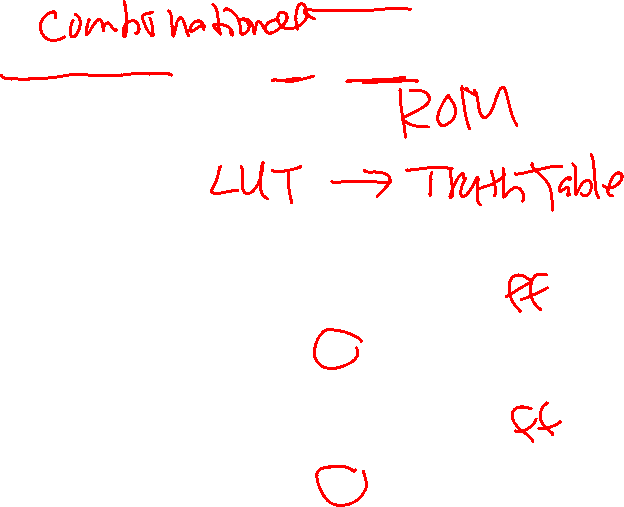 Combinational
ROM
LUT → Truth Table
ff
ff